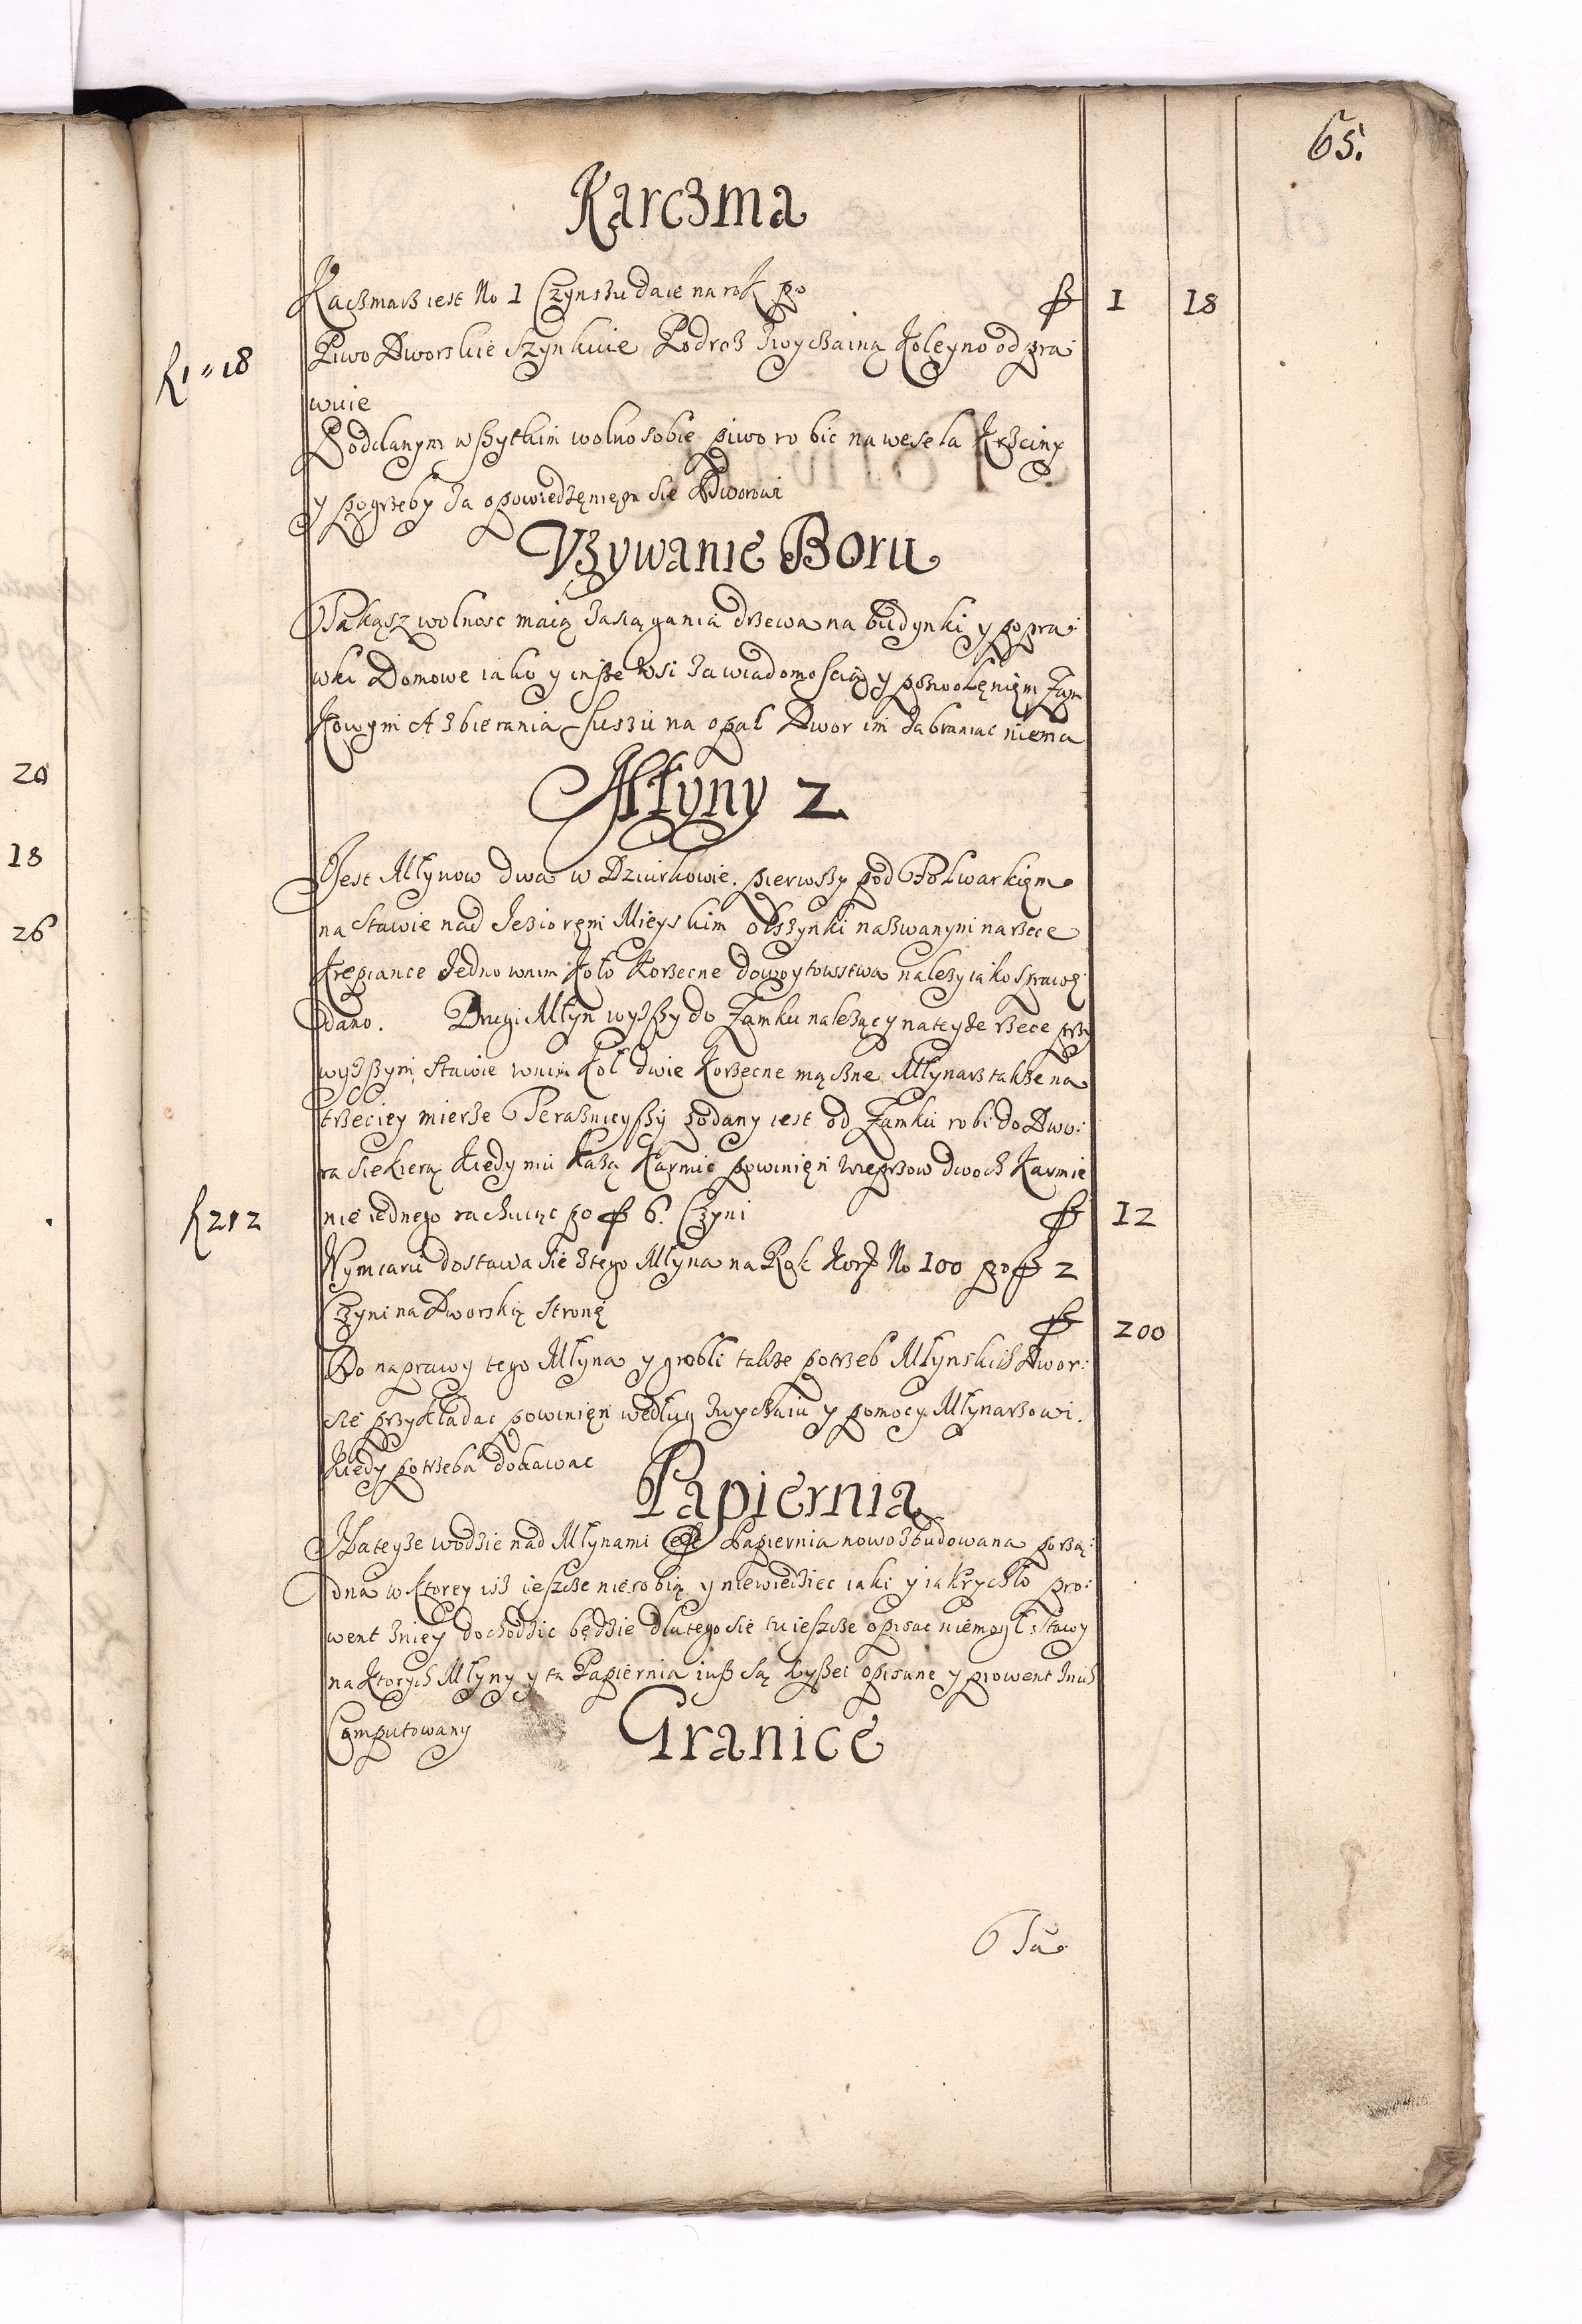 65.
Karczma
Kaczmarz iest No 1 Czynszu daie na rok po ƒ 1 18
ƒ1 " 18
Piwo Dworskie szynkuie Podroz zwyczainą koleyno odpra:
wuie
Poddanym wszytkim wolno sobie piwo robic na wesela Krzciny
y pogrzeby za opowiedzęnięm sie Dworowi
Vzywanie Boru
Takąsz wolnosc maią zasiągania drzewa na budynki y popra:
wki Domowe iako y insze wsi za wiadomoscią y pozwolęnięm Zam
kowym A zbierania suszu na opał Dwor im zabraniac niema
Młyny 2
Jest Młynow dwa w Dziurkowie. pierwszy pod Folwarkięm
na stawie nad Jezioręm Mieyskim Olszynki nazwanym na rzece
Krępiance Jedno wnim koło korzecne do woytowstwa nalezy iako sprawę
dano. Drugi Młyn wyszszy do Zamku nalezący na teyze rzece przy
wyszszym stawie wnim kol dwie korzecne mączne Młynarz takze na
trzeciey mierze Teraznieyszy podany iest od Zamku robi do Dwo:
ra siekierą kiedy mu kazą karmic powinięn wieprzow dwoch karmie
nie iednego rachuiąc po ƒ 6. Czyni ƒ 12
ƒ212
Wymiaru dostawa sie ztego Młyna na Rok korcy No 100 po ƒ 2
Czyni na Dworską stronę ƒ 200
Do naprawy tego Młyna y grobli takze potrzeb Młynskich Dwor:
sie przykładac powinięn według zwyczaiu y pomocy Młynarzowi.
kiedy potrzeba dodawac
Papiernia
Na teyze wodzie nad Młynami iest Papiernia nowo zbudowana porzą:
dna w ktorey isz ieszcze nie robią y niewiedziec iaki y iak rychło pro:
went zniey dochodzic będzie dlatego sie tu ieszcze opisac niemogł: Stawy
na ktorych Młyny y ta Papiernia iusz są wyszei opisane y prowent znich
Computowany
Granice
20
18
26